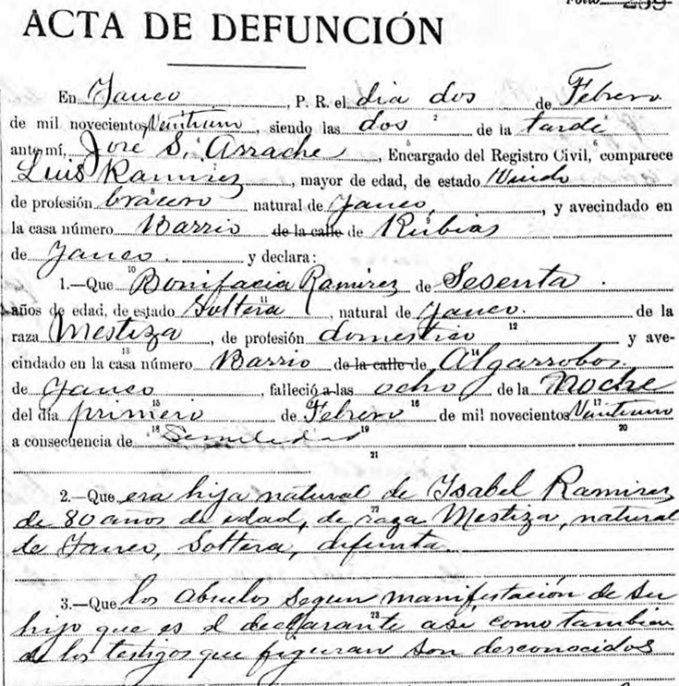 Folio 259
ACTA DE DEFUNCIÓN
En Yauco, P. R. el dia dos de Febrero
de mil novecientos Veintiuno, siendo las dos 2 de la tarde
ante mí, José S. Arrache, Encargado del Registro Civil, 6 comparece
Luis Ramirez, mayor de edad, de estado Viudo
de profesión bracero natural de Yauco, y avecindado en
la casa número Barrio de la calle de Rubias
de Yauco y declara:
1.—Que 10 Bonifacia Ramirez de Sesenta
años de edad, de estado Soltera 11, natural de Yauco de la
raza Mestiza, de profesión domestico 12 y ave-
cindado en la casa número 13 Barrio de la calle de Algarrobos
de Yauco, falleció a las ocho de la Noche
del día primero 15 de Febrero 16 de mil novecientos Veintiuno 17
a consecuencia de 18 19 20
21
2.—Que era hija natural de Ysabel Ramirez
de 80 años de edad, de raza Mestiza, natural
de Yauco, Soltera, difunta
3.—Que los abuelos segun manifestación de su
hijo que es el declarante 23 asi como tambien
de los testigos que figuran son desconocidos